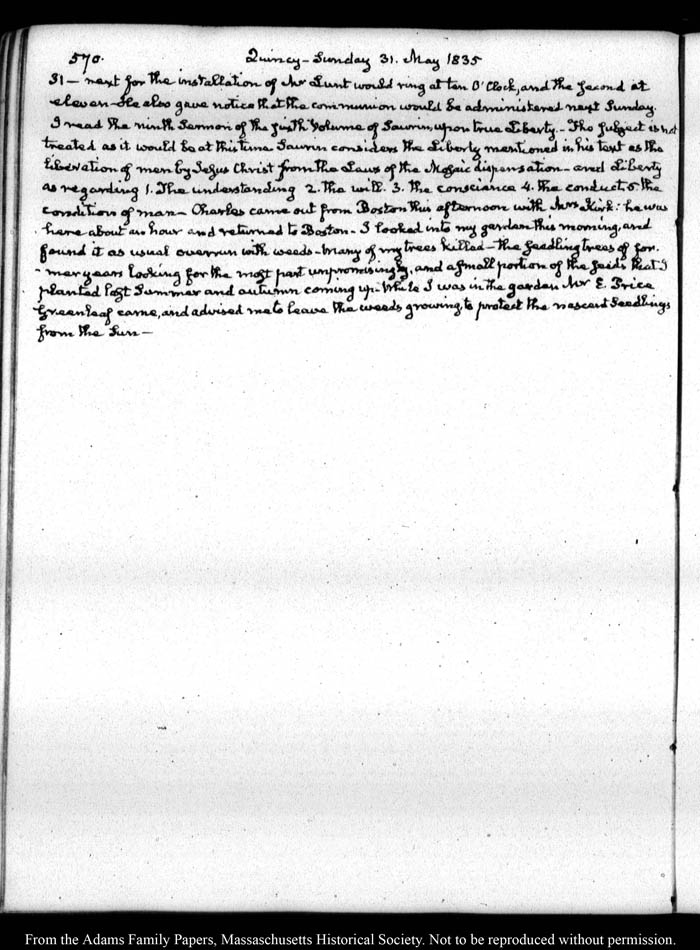 570.
Quincy - Sunday 31. May 1835
31 — next for the installation of Mr Lunt would ring at ten O'Clock, and the second at
eleven - He also gave notice that the communion would be administered next Sunday.
I read the ninth Sermon of the sixth Volume of Saurin, upon true Liberty - The subject is not
treated as it would be at this time. Saurin considers the Liberty mentioned in his text as the
liberation of men by Jesus Christ from the Laws of the Mosaic dispensation - and Liberty
as regarding 1. The understanding 2. the will. 3. the conscience 4. the conduct 5 the
condition of man - Charles came out from Boston this afternoon with Mrs Kirk: he was
here about an hour and returned to Boston - I looked into my garden this morning, and
found it as usual overrun with weeds - many of my trees killed - the seedling trees of for-
-mer years looking for the most part unpromisingly, and a small portion of the seeds that I
planted last Summer and autumn coming up. While I was in the garden Mr E. Price
Greenleaf came, and advised me to leave the weeds growing, to protect the nascent seedlings
from the Sun —
From the Adams Family Papers, Massachusetts Historical Society. Not to be reproduced without permission.